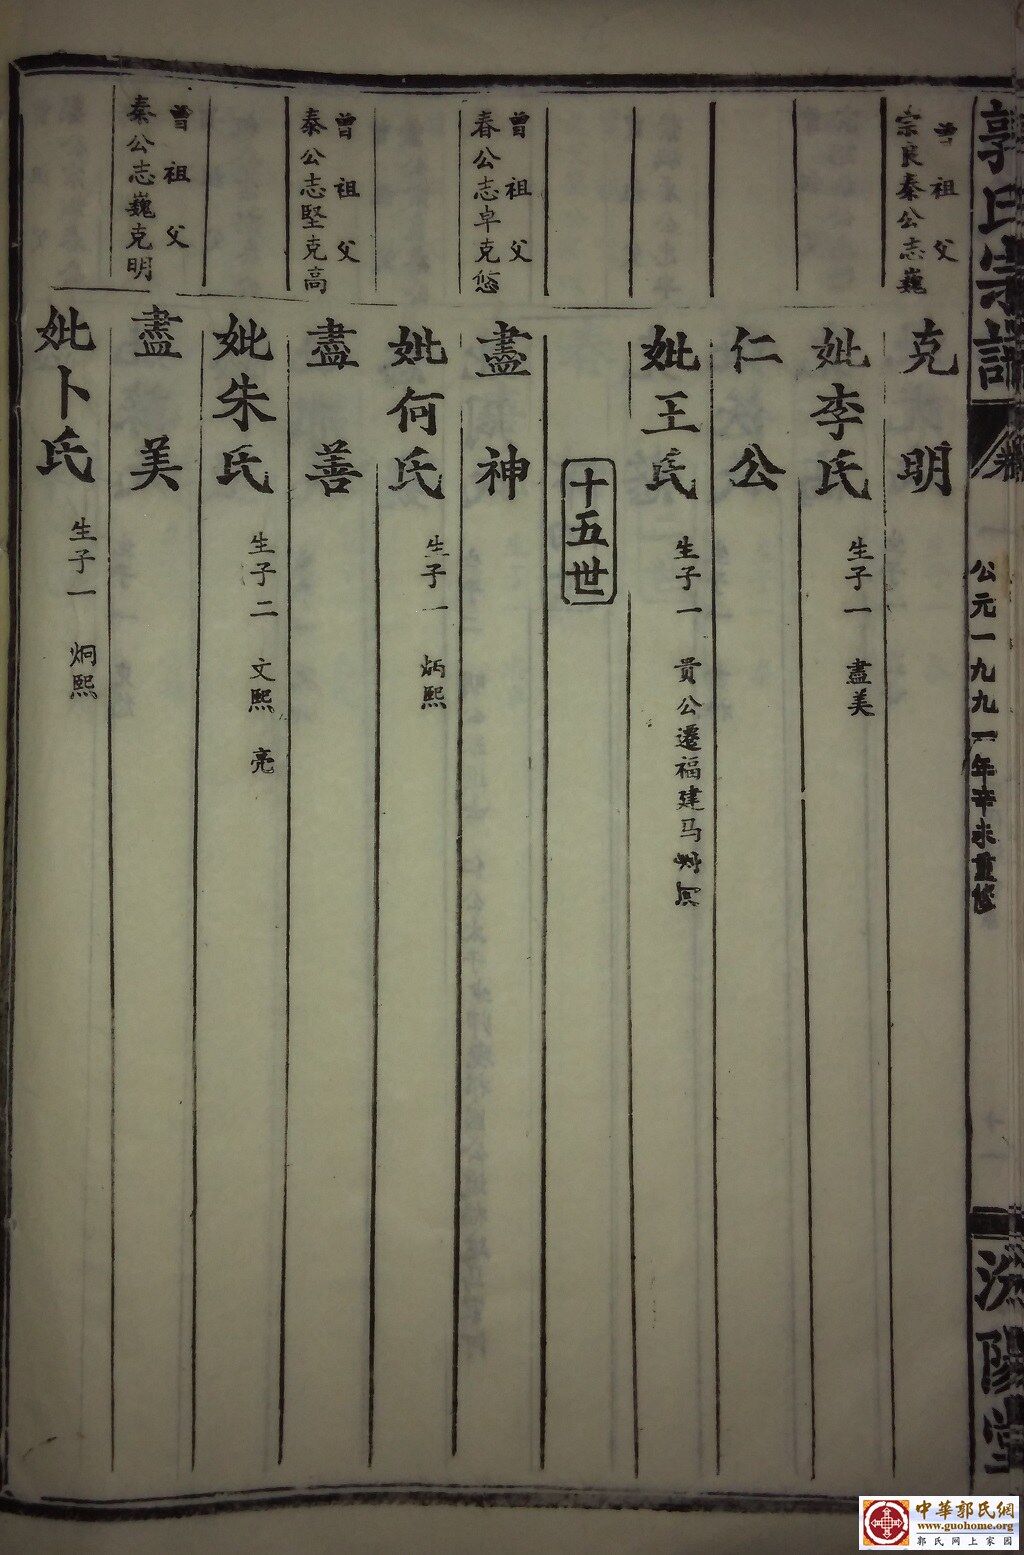 郭氏宗譜
卷
公元一九九一年辛未重修
汾陽堂
曾祖父
宗良秦公志巍
克明
妣李氏 生子一 盡美
仁公
妣王氏 生子一 貫公遷福建马
十五世
曾祖父
春公志卓克悠
盡神
妣何氏 生子一 炳熙
曾祖父
秦公志堅克高
盡善
妣朱氏 生子二 文熙 亮
曾祖父
秦公志巍克明
盡美
妣卜氏 生子一 炯熙
中華郭氏網
www.guohome.org
郭氏网上家园